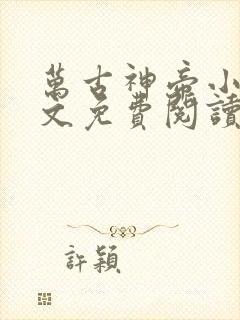 萬古神帝小
文免費閱讀
許穎